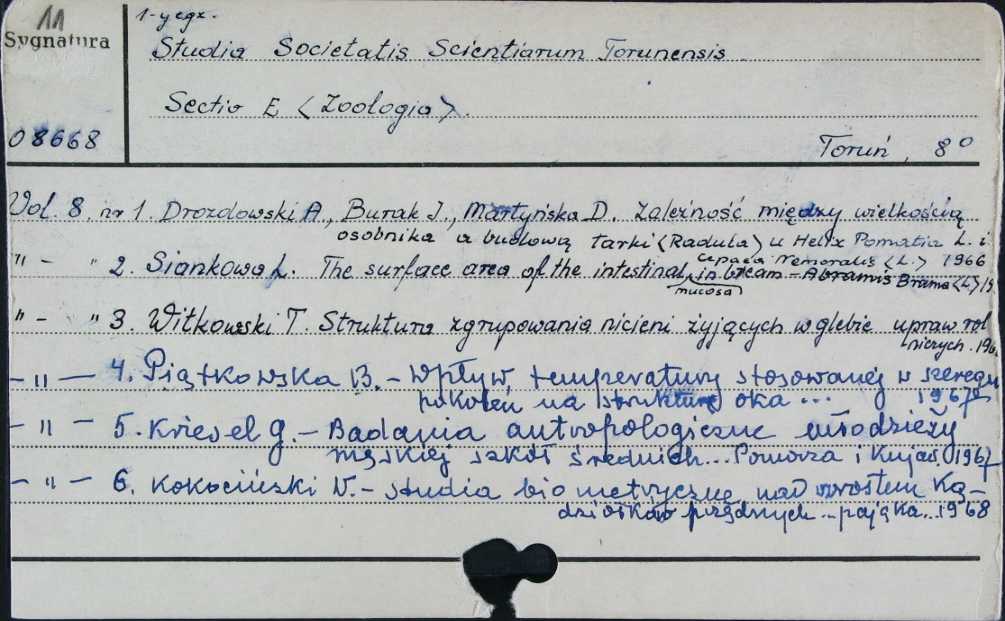 11
1-y egz.
Sygnatura
Studia Societatis Scientiarum Torunensis
Sectio E <Zoologia>.
08668
Toruń, 8°
Vol. 8. nr 1. Drozdowski A., Burak J., Martyńska D. Zależność między wielkością
osobnika a budową tarki <Radula> u Helix Pomatia L. i
Cepaea Nemoralis <L.> 1966
" - " 2. Siankowa L. The surface area of the intestinal in bream - Abramis Brama <L> 19
mucosa
" - " 3. Witkowski T. Struktura zgrupowania nicieni żyjących w glebie upraw rol
niczych. 196
- " - 4. Piątkowska B. - Wpływ temperatury stosowanej w szeregu
pokoleń na strukturę oka ... 1967
- " - 5. Kriesel G. - Badania antropologiczne młodzieży
męskiej szkół średnich... Pomorza i Kujaw. 1967
- " - 6. Kokociński W. - studia biometryczne nad wzrostem ką-
dziołków przędnych ... pająka... 1968